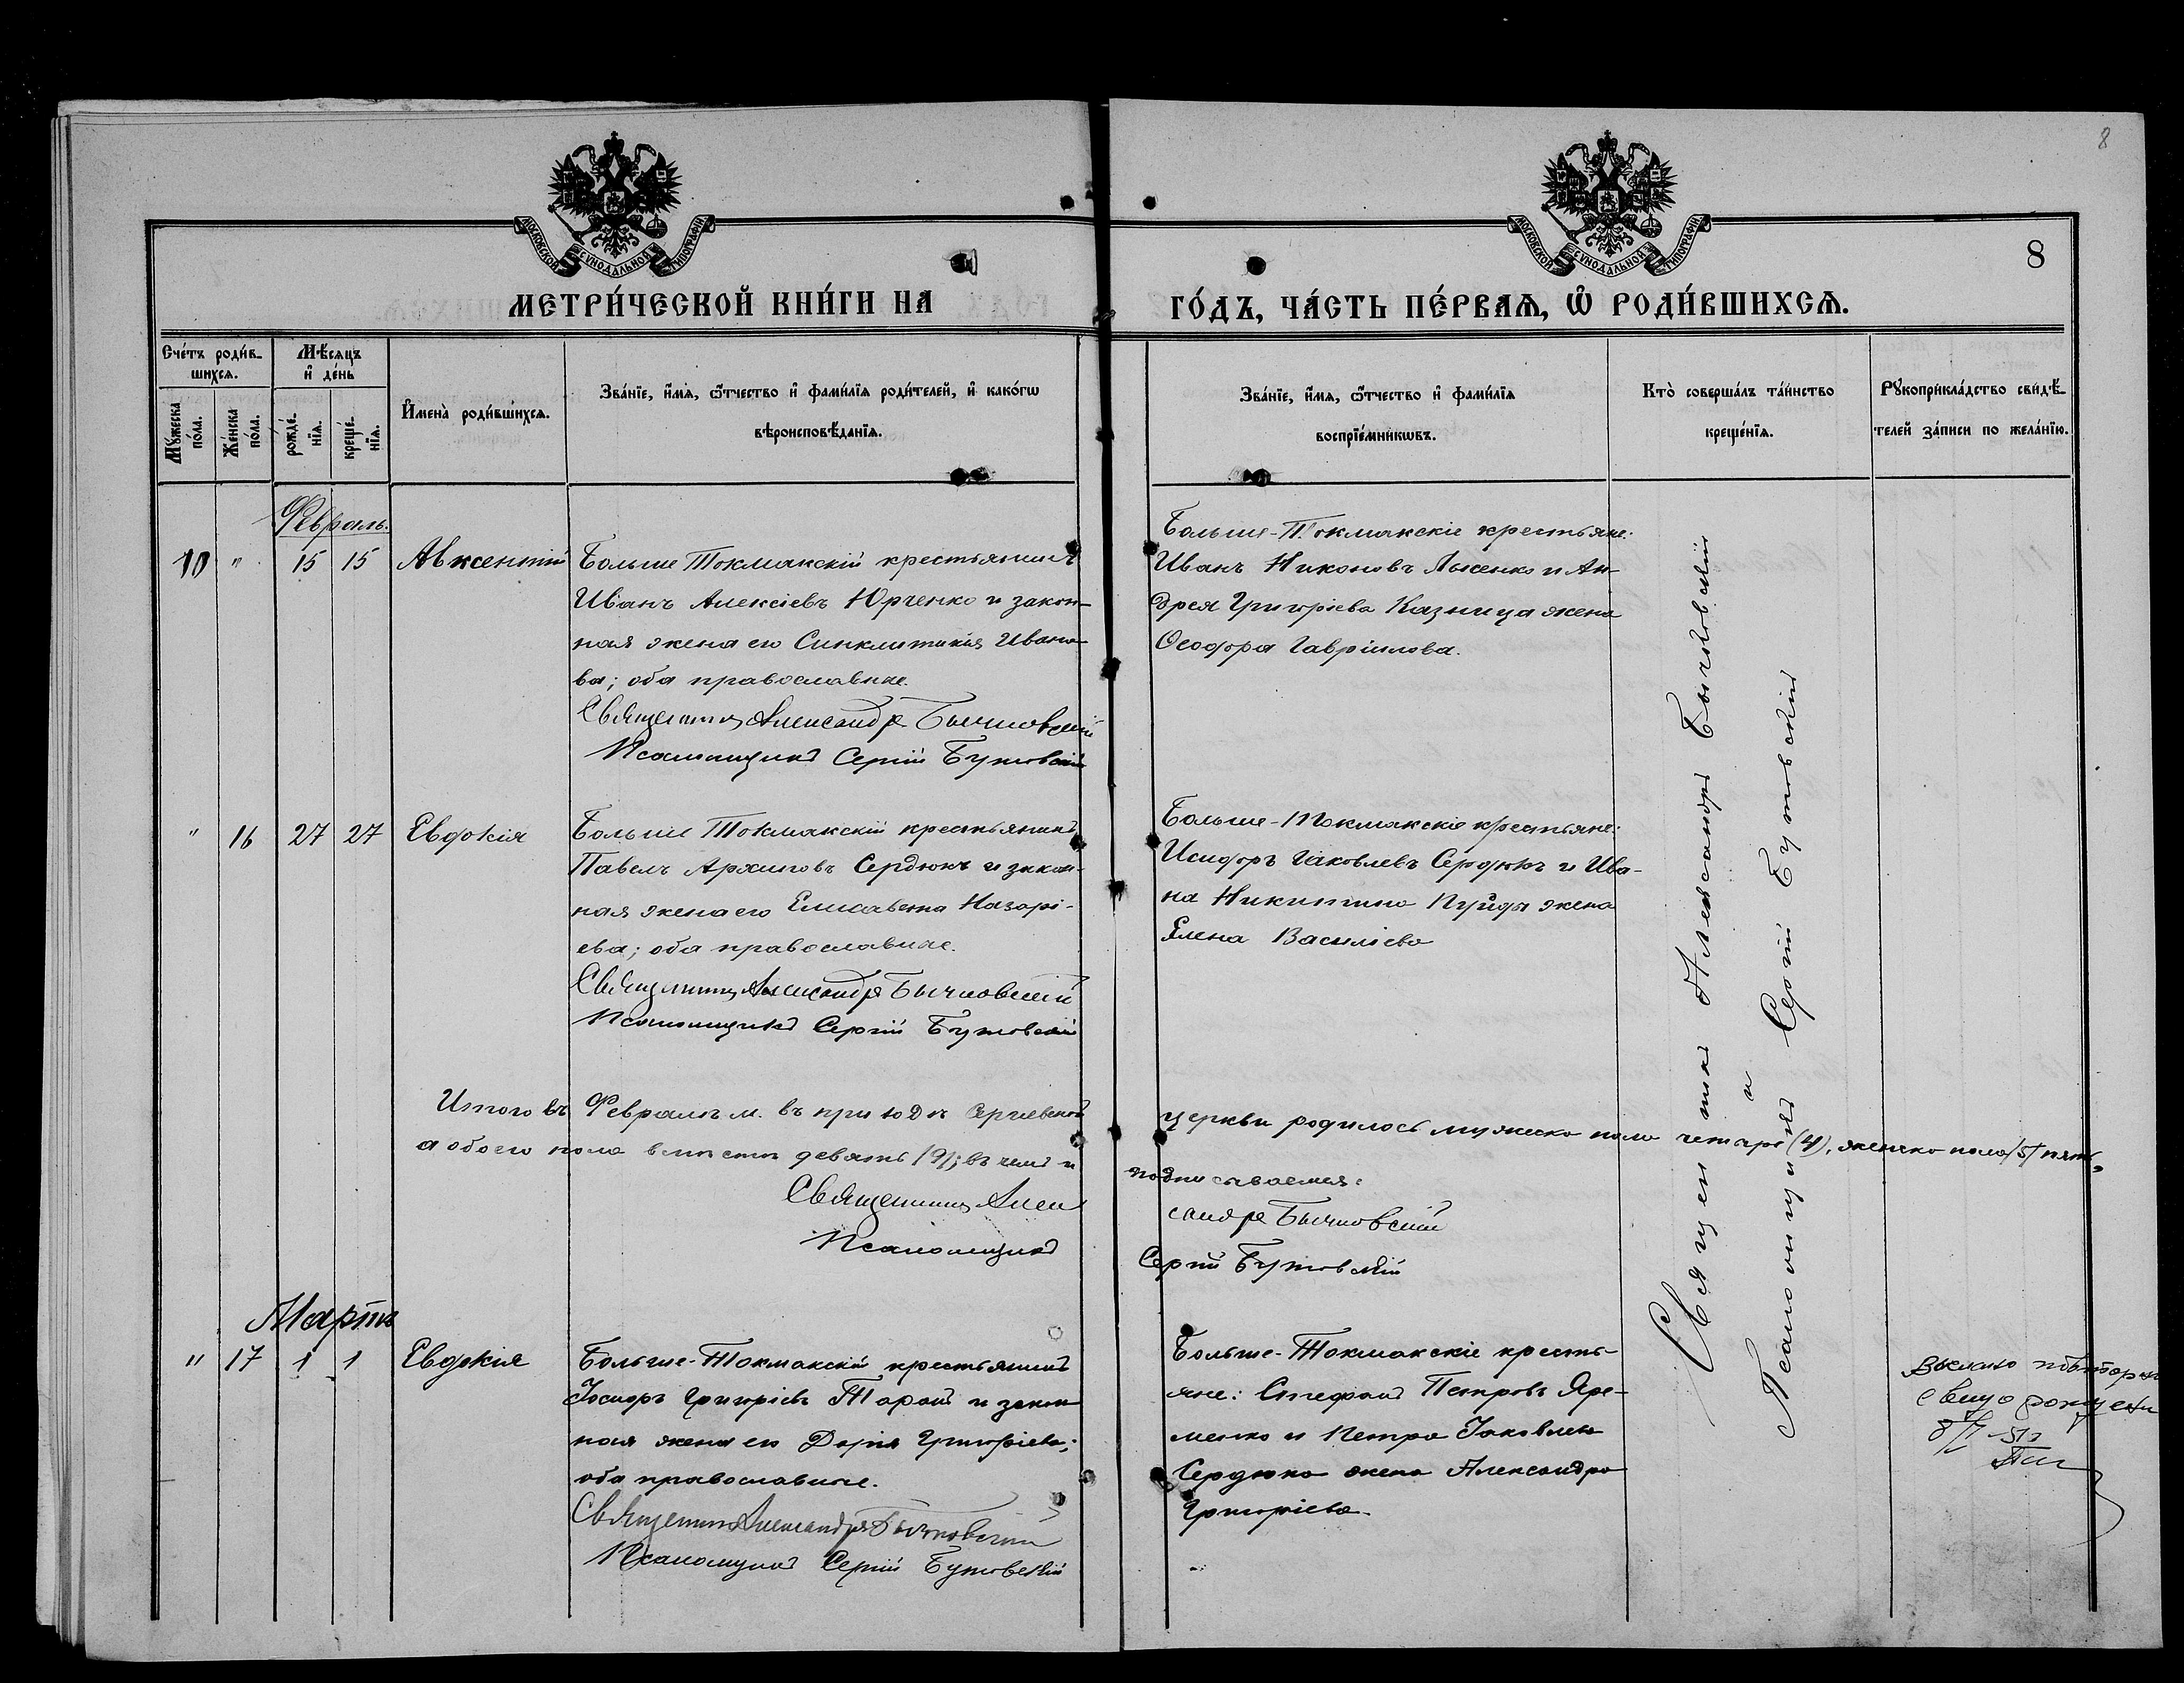 8
МОСКОВСКОЙ СѴНОДАЛЬНОЙ ТИПОГРАФІИ
МОСКОВСКОЙ СѴНОДАЛЬНОЙ ТИПОГРАФІИ
8
МЕТРИ́ЧЕСКОЙ КНИ́ГИ НА
ГО́ДЪ, ЧА́СТЬ ПЕ́РВАѦ, Ѽ РОДИ́ВШИХСѦ.
Сче́тъ роди́в-
шихсѧ.
Мꙋ́жеска
по́ла.
Же́нска
по́ла.
Мѣ́сѧцъ
и҆ де́нь
рожде́-
нїѧ.
креще́-
нїѧ.
И҆мена̀ роди́вшихсѧ.
Зва́нїе, и҆́мѧ, ѻ҆́тчество и҆ фами́лїѧ роди́телей, и҆ како́гѡ
вѣроисповѣ́данїѧ.
Зва́нїе, и҆́мѧ, ѻ҆́тчество и҆ фами́лїѧ
воспрїе́мникѡвъ.
Кто̀ соверша́лъ та́инство
креще́нїѧ.
Рꙋкоприкла́дство свидѣ́-
телей за́писи по жела́нїю.
Февраль.
10 " 15 15 Авксентій
Больше Токмакскій крестьянинъ
Иванъ Алексіевъ Юрченко и закон-
ная жена его Синклитикія Ивано-
ва; оба православные.
Священникъ Александръ Бычковскій
Псаломщикъ Сергій Бутовскій
Больше-Токмакскіе крестьяне:
Иванъ Никоновъ Лысенко и Ан-
дрея Григоріева Казница жена
Ѳеодора Гавріилова.
" 16 27 27 Евдокія
Больше Токмакскій крестьянинъ
Павелъ Архиповъ Сердюкъ и закон-
ная жена его Елисавета Назарі-
ева; оба православные.
Священникъ Александръ Бычковскій
Псаломщикъ Сергій Бутовскій
Больше-Токмакскіе крестьяне:
Исидоръ Іаковлевъ Сердюкъ и Ива-
на Никитина жена
Елена Василіева
Итого въ Февралѣ м. въ приходѣ Сергіевской церкви родилось мужеска пола четыре (4), женска пола (5) пять,
а обоего пола вмѣстѣ девять (9); въ чемъ и подписываемся:
Священникъ Александръ Бычковскій
Псаломщикъ Сергій Бутовскій
Мартъ
" 17 1 1 Евдокія
Больше-Токмакскій крестьянинъ
Григоріевъ Таранъ и закон-
ная жена его Дарія Григоріева;
оба православные.
Священникъ Александръ Бычковскій
Псаломщикъ Сергій Бутовскій
Больше-Токмакскіе кресть-
яне: Стефанъ Петровъ Яре-
менко и Петра Іаковлева
Сердюка жена Александра
Григоріева.
Священникъ Александръ Бычковскій
и
Псаломщикъ Сергій Бутовскій